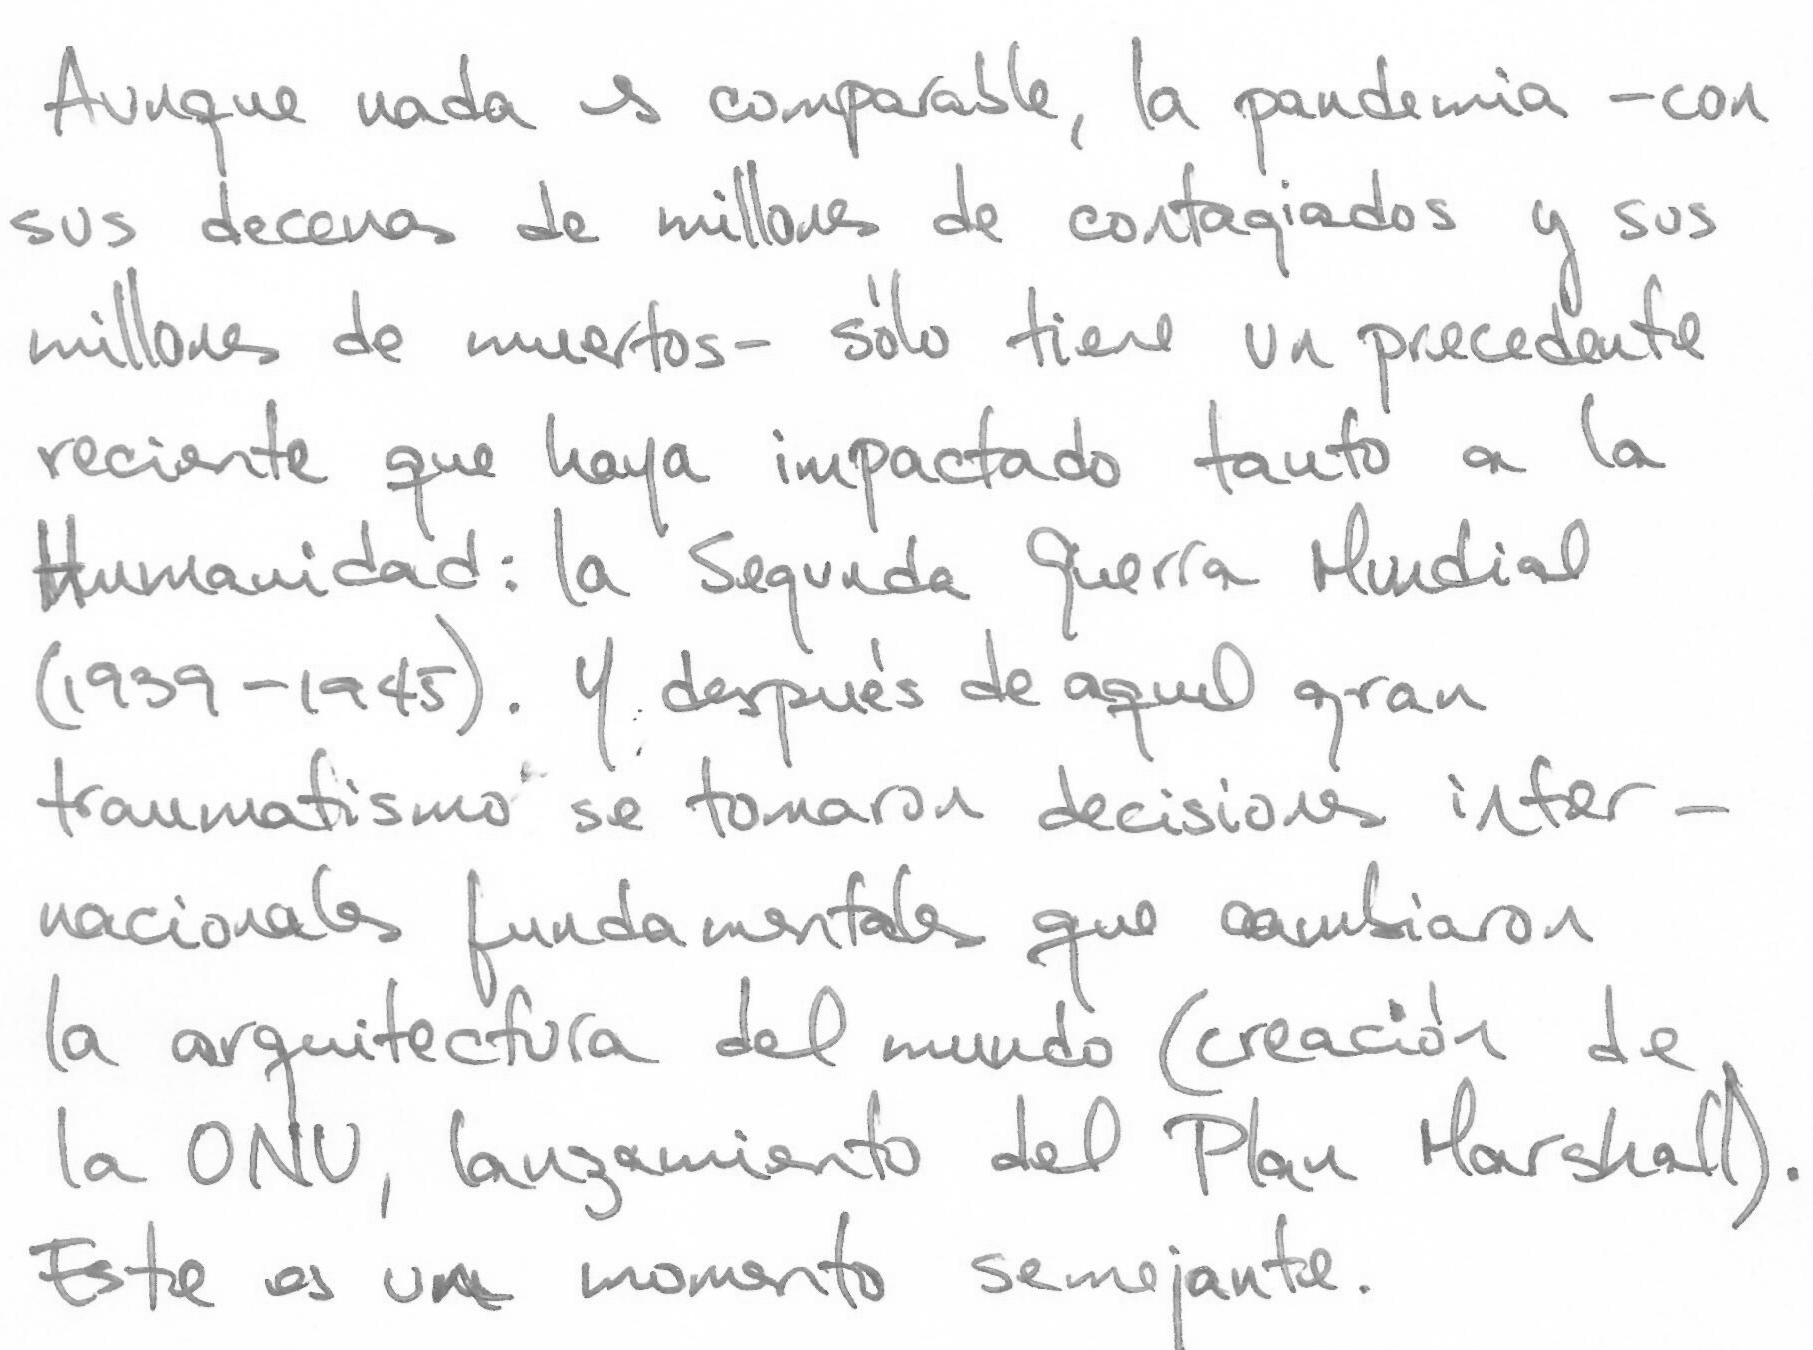 Aunque nada es comparable, la pandemia -con
sus decenas de millones de contagiados y sus
millones de muertos- sólo tiene un precedente
reciente que haya impactado tanto a la
Humanidad: la Segunda Guerra Mundial
(1939-1945). Y después de aquel gran
traumatismo se tomaron decisiones inter-
nacionales fundamentales que cambiaron
la arquitectura del mundo (creación de
la ONU, lanzamiento del Plan Marshall).
Este es un momento semejante.